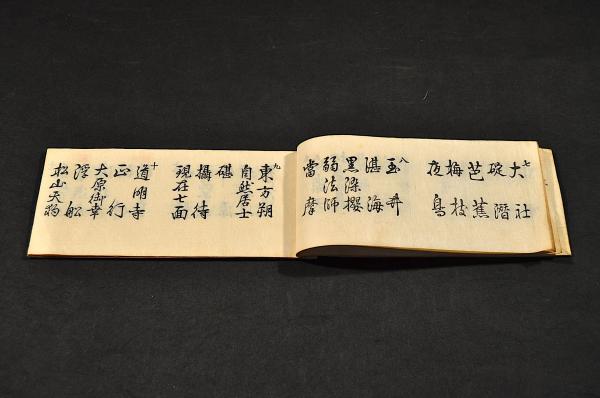 七 大社
碇潜
芭蕉
梅枝
夜鳥
八 玉井
湛海
墨染櫻
弱法師
當摩
九 東方朔
自然居士
碪
攝待
現在七面
十 道明寺
正行
大原御幸
浮船
松山天狗